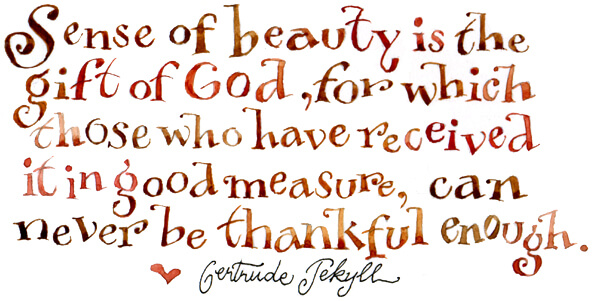 Sense of beauty is the
gift of God, for which
those who have received
it in good measure, can
never be thankful enough.
Gertrude Jekyll